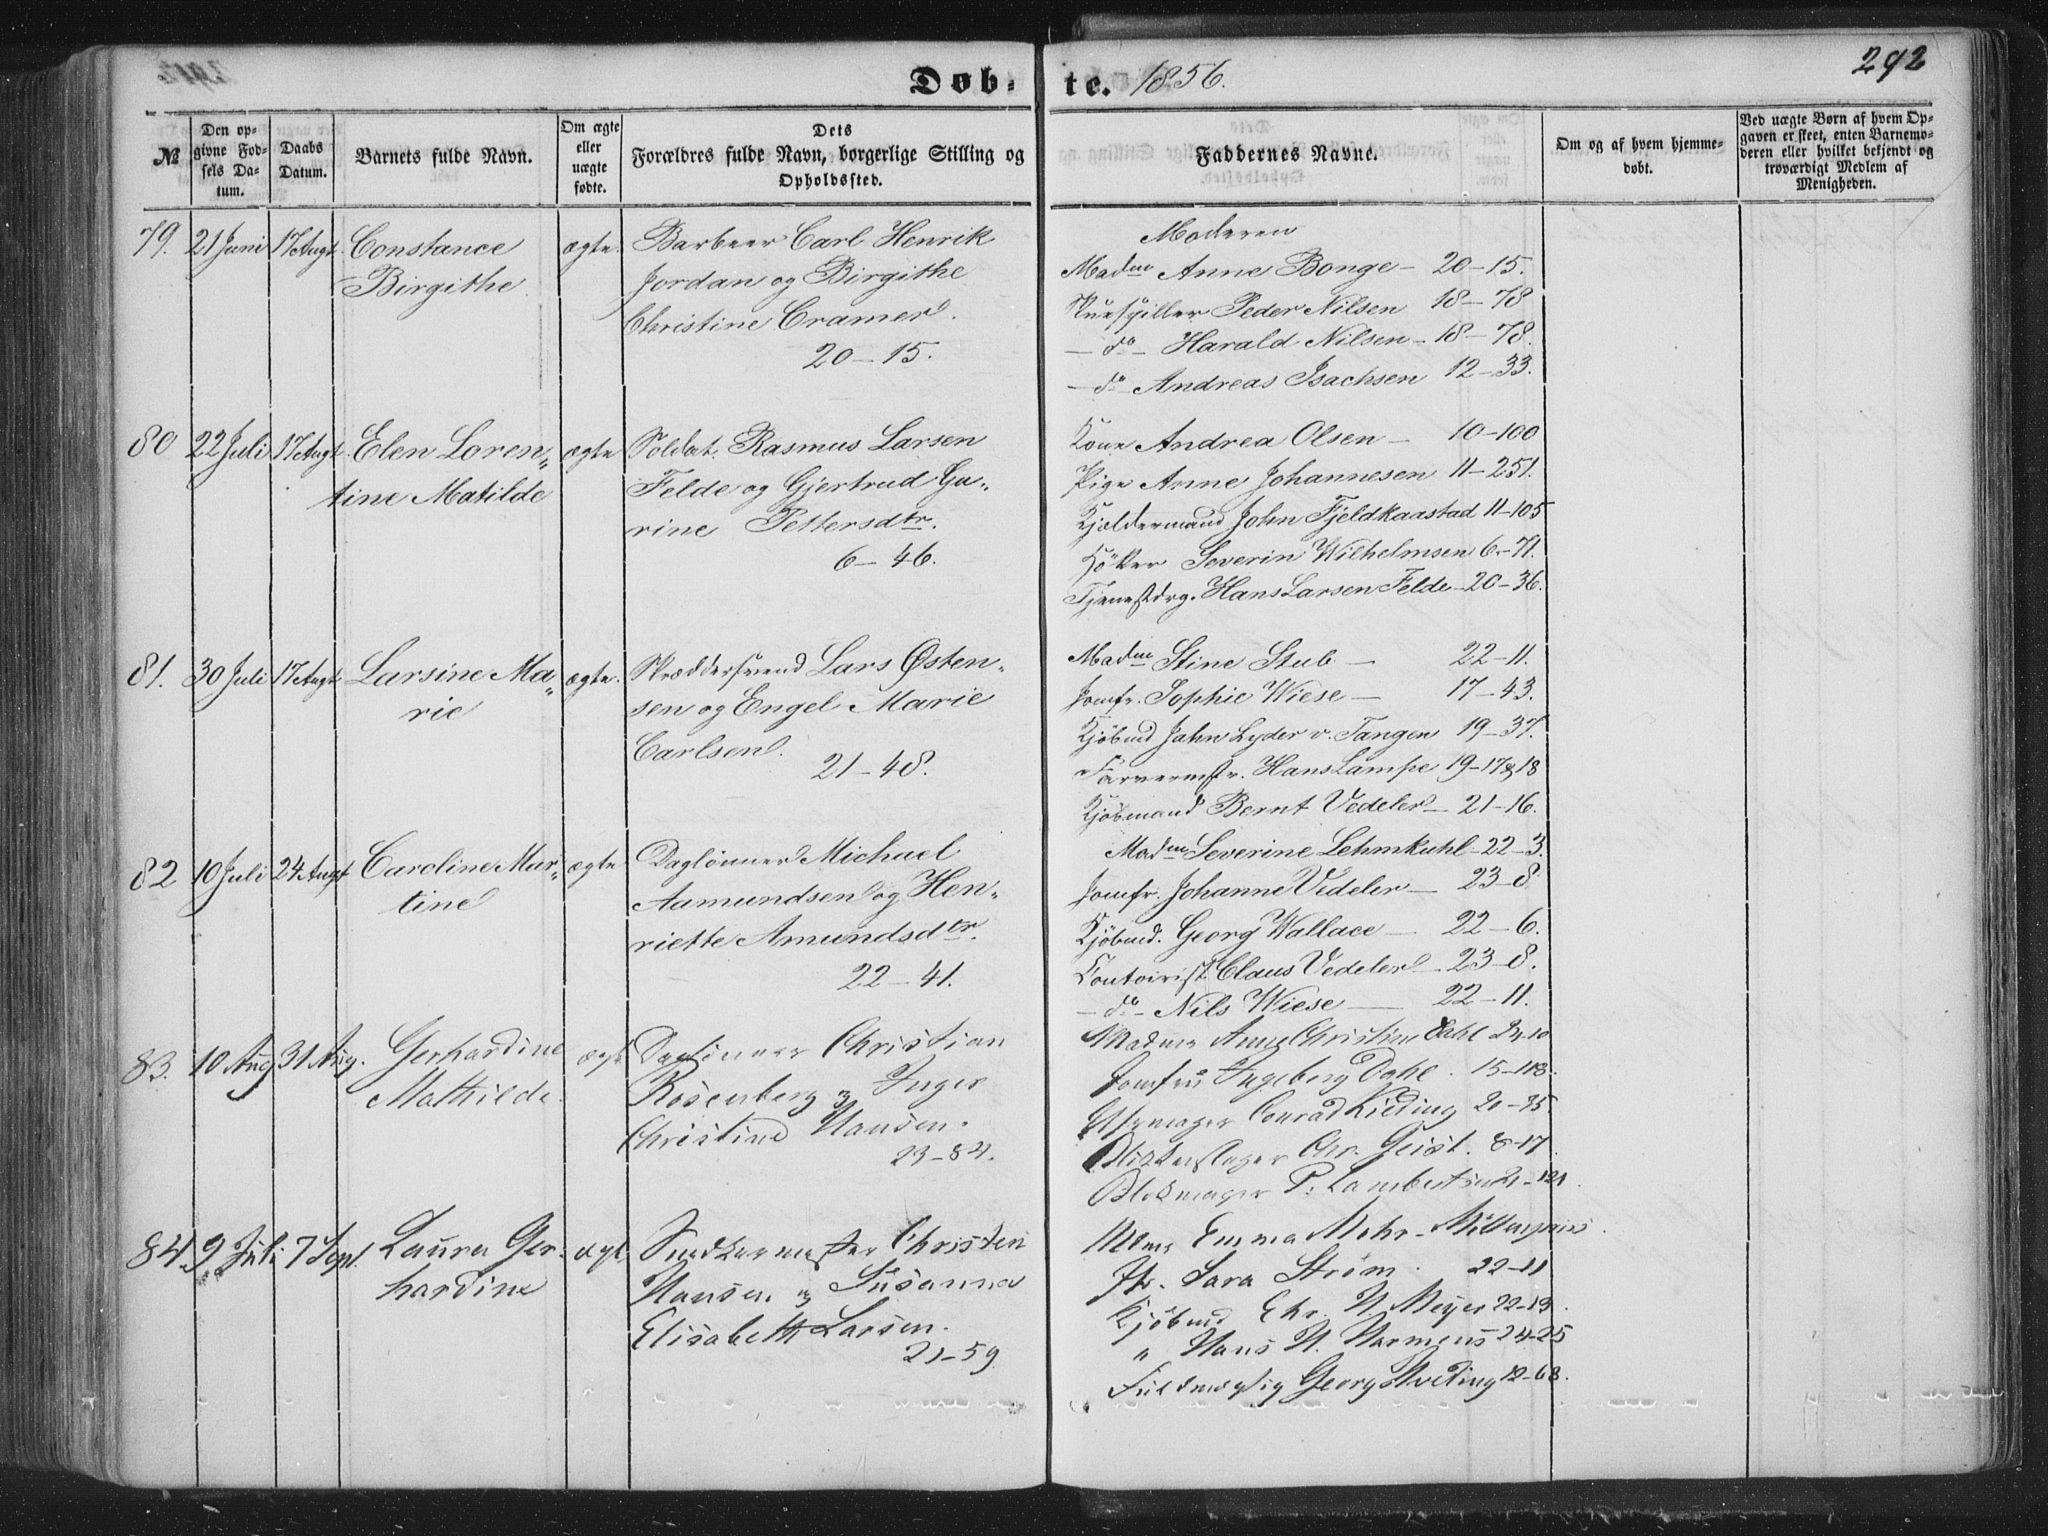 Døb- te. 1856. 292
№ | Den opgivne Fødsels Datum. | Daabs Datum. | Barnets fulde Navn. | Om ægte eller uægte fødte. | Dets Forældres fulde Navn, borgerlige Stilling og Opholdssted. | Faddernes Navne. | Om og af hvem hjemmedøbt. | Ved uægte Børn af hvem Opgaven er skeet, enten Barnemoderen eller hvilket bekjendt og troværdigt Medlem af Menigheden.
79. 21 Juni 17 Augt. Constance ægte. Barbeer Carl Henrik
Birgithe Jordan og Birgithe
Christine Cramer.
20-15.
Moderen
Madm Anne Bonge - 20-15.
Skuespiller Peder Nilsen 18-78
- do - Harald Nilsen - 18-78.
- do - Andreas Isachsen 12-33.
80 22 Juli 17 Augt. Elen Loren- ægte Soldat. Rasmus Larsen
tine Matilde Felde og Gjertrud Gu-
rine Pettersdtr.
6-46.
Kone Andrea Olsen - 10-100
Pige Anne Johannesen 11-251.
Kjeldermand John Fjeldkaastad 11-105
Höker Severin Wilhelmsen 6-71.
Tjenestdrg. Hans Larsen Felde - 20-36.
81. 30 Juli 17 Augt. Larsine Ma- ægte. Skræddersvend Lars Østen-
rie sen og Engel Marie
Carlsen.
21-48.
Madm Stine Stub - 22-11.
Jomfr. Sophie Wiese - 17-43.
Kjøbmd Jahn Lyder v. Tangen 19-37.
Farvermstr. Hans Lampe 19-17&18
Kjøbmand Bernt Vedeler - 21-16.
82 10 Juli 24 Augt Caroline Mar- ægte Daglønner Michael
tine Aamundsen og Hen-
riette Amundsdtr.
22-41.
Madm Severine Lehmkuhl - 22-3.
Jomfr. Johanne Vedeler - 23-8
Kjøbmd. Georg Wallace - 22-6.
Kontoirist. Claus Vedeler - 23-8.
- do - Nils Wiese - 22-11.
83. 10 Aug 31 Aug. Gerhardine ægte Daglønner Christian
Mathilde. Rosenberg og Inger
Christine Hansen.
23-84.
Madme Anne Christine Dahl
Jomfru Ingeborg Dahl. 15-118.
Conrad Kieding 20-35
Chr. Geist. 8-17.
Blokmager P. Lambertsen 21-121.
84. 9 Juli 7 Sept. Laura Ger- ægte Snedkermester Christen
hardine Hansen og Susanna
Elisabeth Larsen.
21-59
Mdme Emma Mohr -
Jfr. Sara Strøm. 22-11
Kjøbmd Chr. H. Meyer 22-13.
" Hans H. Harmens 24-25
Fuldmægtig Georg 12-68.